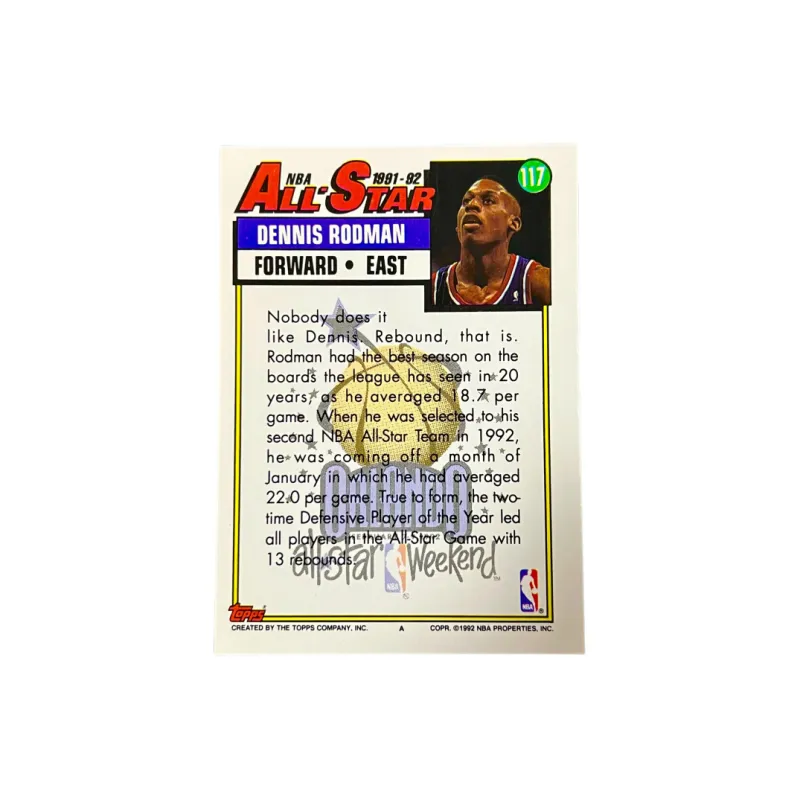 NBA 1991-92
ALL-STAR
117
DENNIS RODMAN
FORWARD • EAST
Nobody does it
like Dennis. Rebound, that is.
Rodman had the best season on the
boards the league has seen in 20
years, as he averaged 18.7 per
game. When he was selected to his
second NBA All-Star Team in 1992,
he was coming off a month of
January in which he had averaged
22.0 per game. True to form, the two-
time Defensive Player of the Year led
all players in the All-Star Game with
13 rebounds.
ORLANDO
all star weekend
NBA
NBA
Topps
CREATED BY THE TOPPS COMPANY, INC. A COPR. ©1992 NBA PROPERTIES, INC.